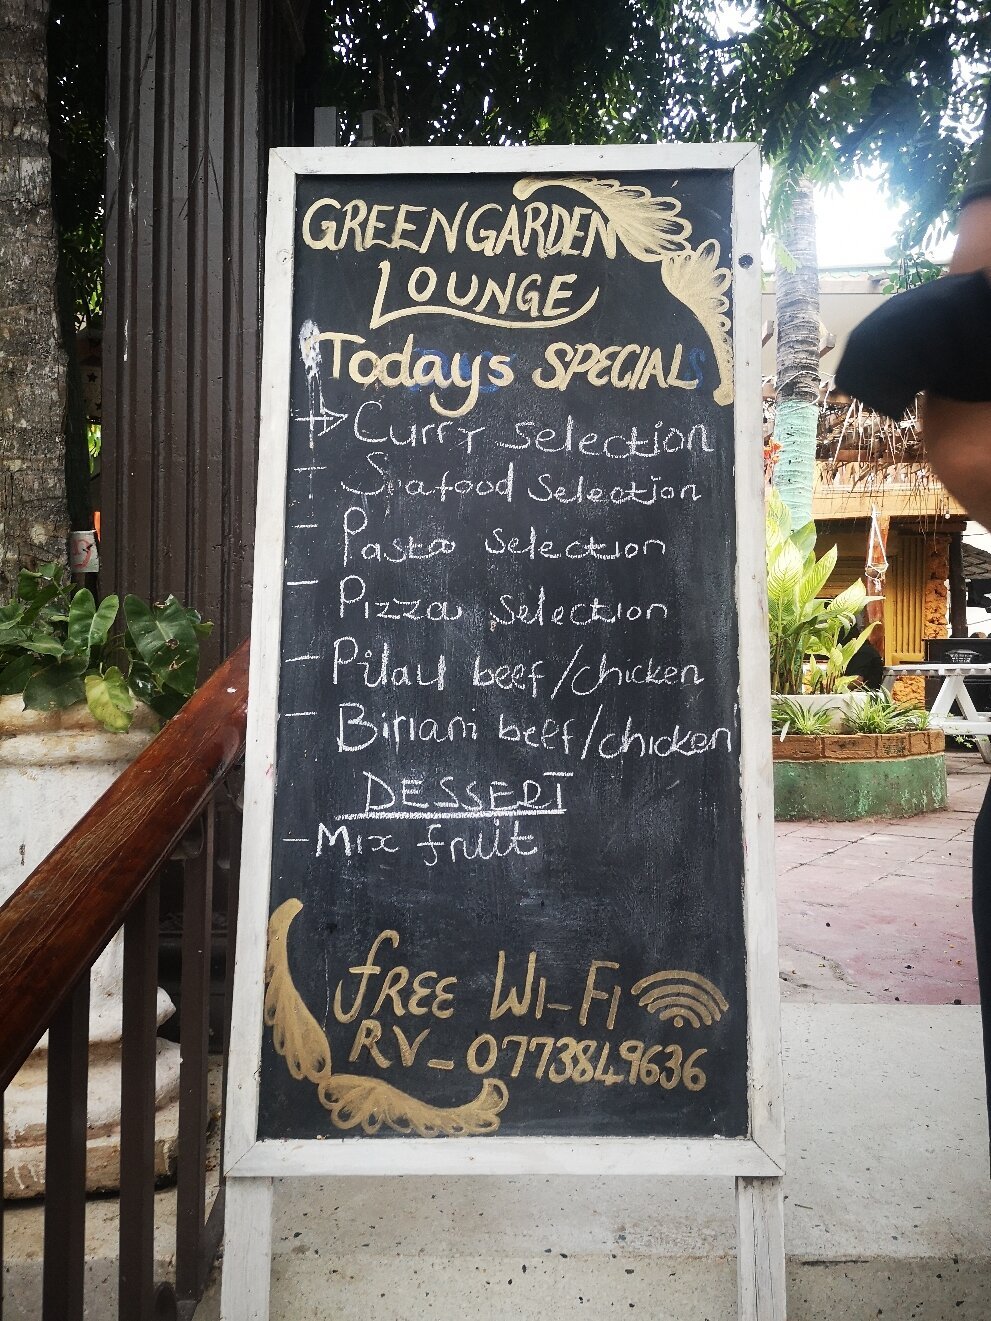 GREENGARDEN
LOUNGE
Todays SPECIALS
Curry Selection
- Seafood Selection
- Pasta Selection
- Pizza Selection
- Pilau beef/chicken
- Biriani beef/chicken
DESSERT
- Mix fruit
FREE WI-FI
RV_0773849636